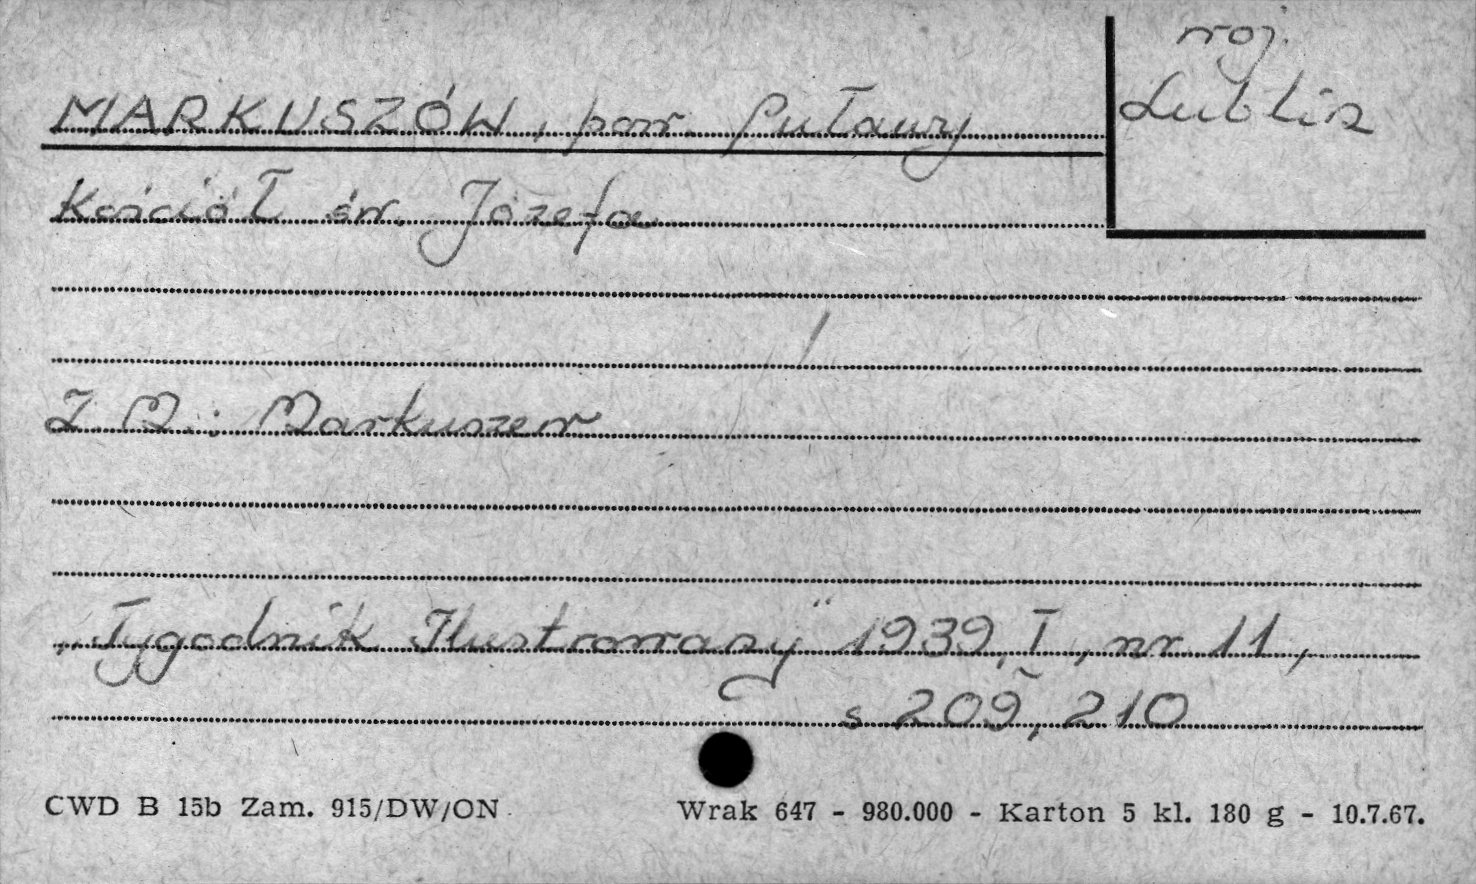 woj.
Lublin
MARKUSZÓW, pow. Puławy
Kościół św. Józefa
Z M.: Markuszew
„Tygodnik Ilustrowany” 1939, I, nr 11,
s 209, 210
CWD B 15b Zam. 915/DW/ON
Wrak 647 - 980.000 - Karton 5 kl. 180 g - 10.7.67.